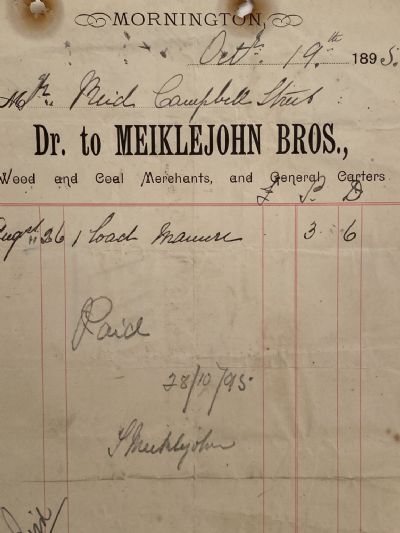 MORNINGTON,
Octr. 19th 1895.
Mr. Reid Campbell Street
Dr. to MEIKLEJOHN BROS.,
Wood and Coal Merchants, and General Carters
£ S D
Augst 26 1 load Manure 3 6
Paid
28/10/95
J Meiklejohn
Paid